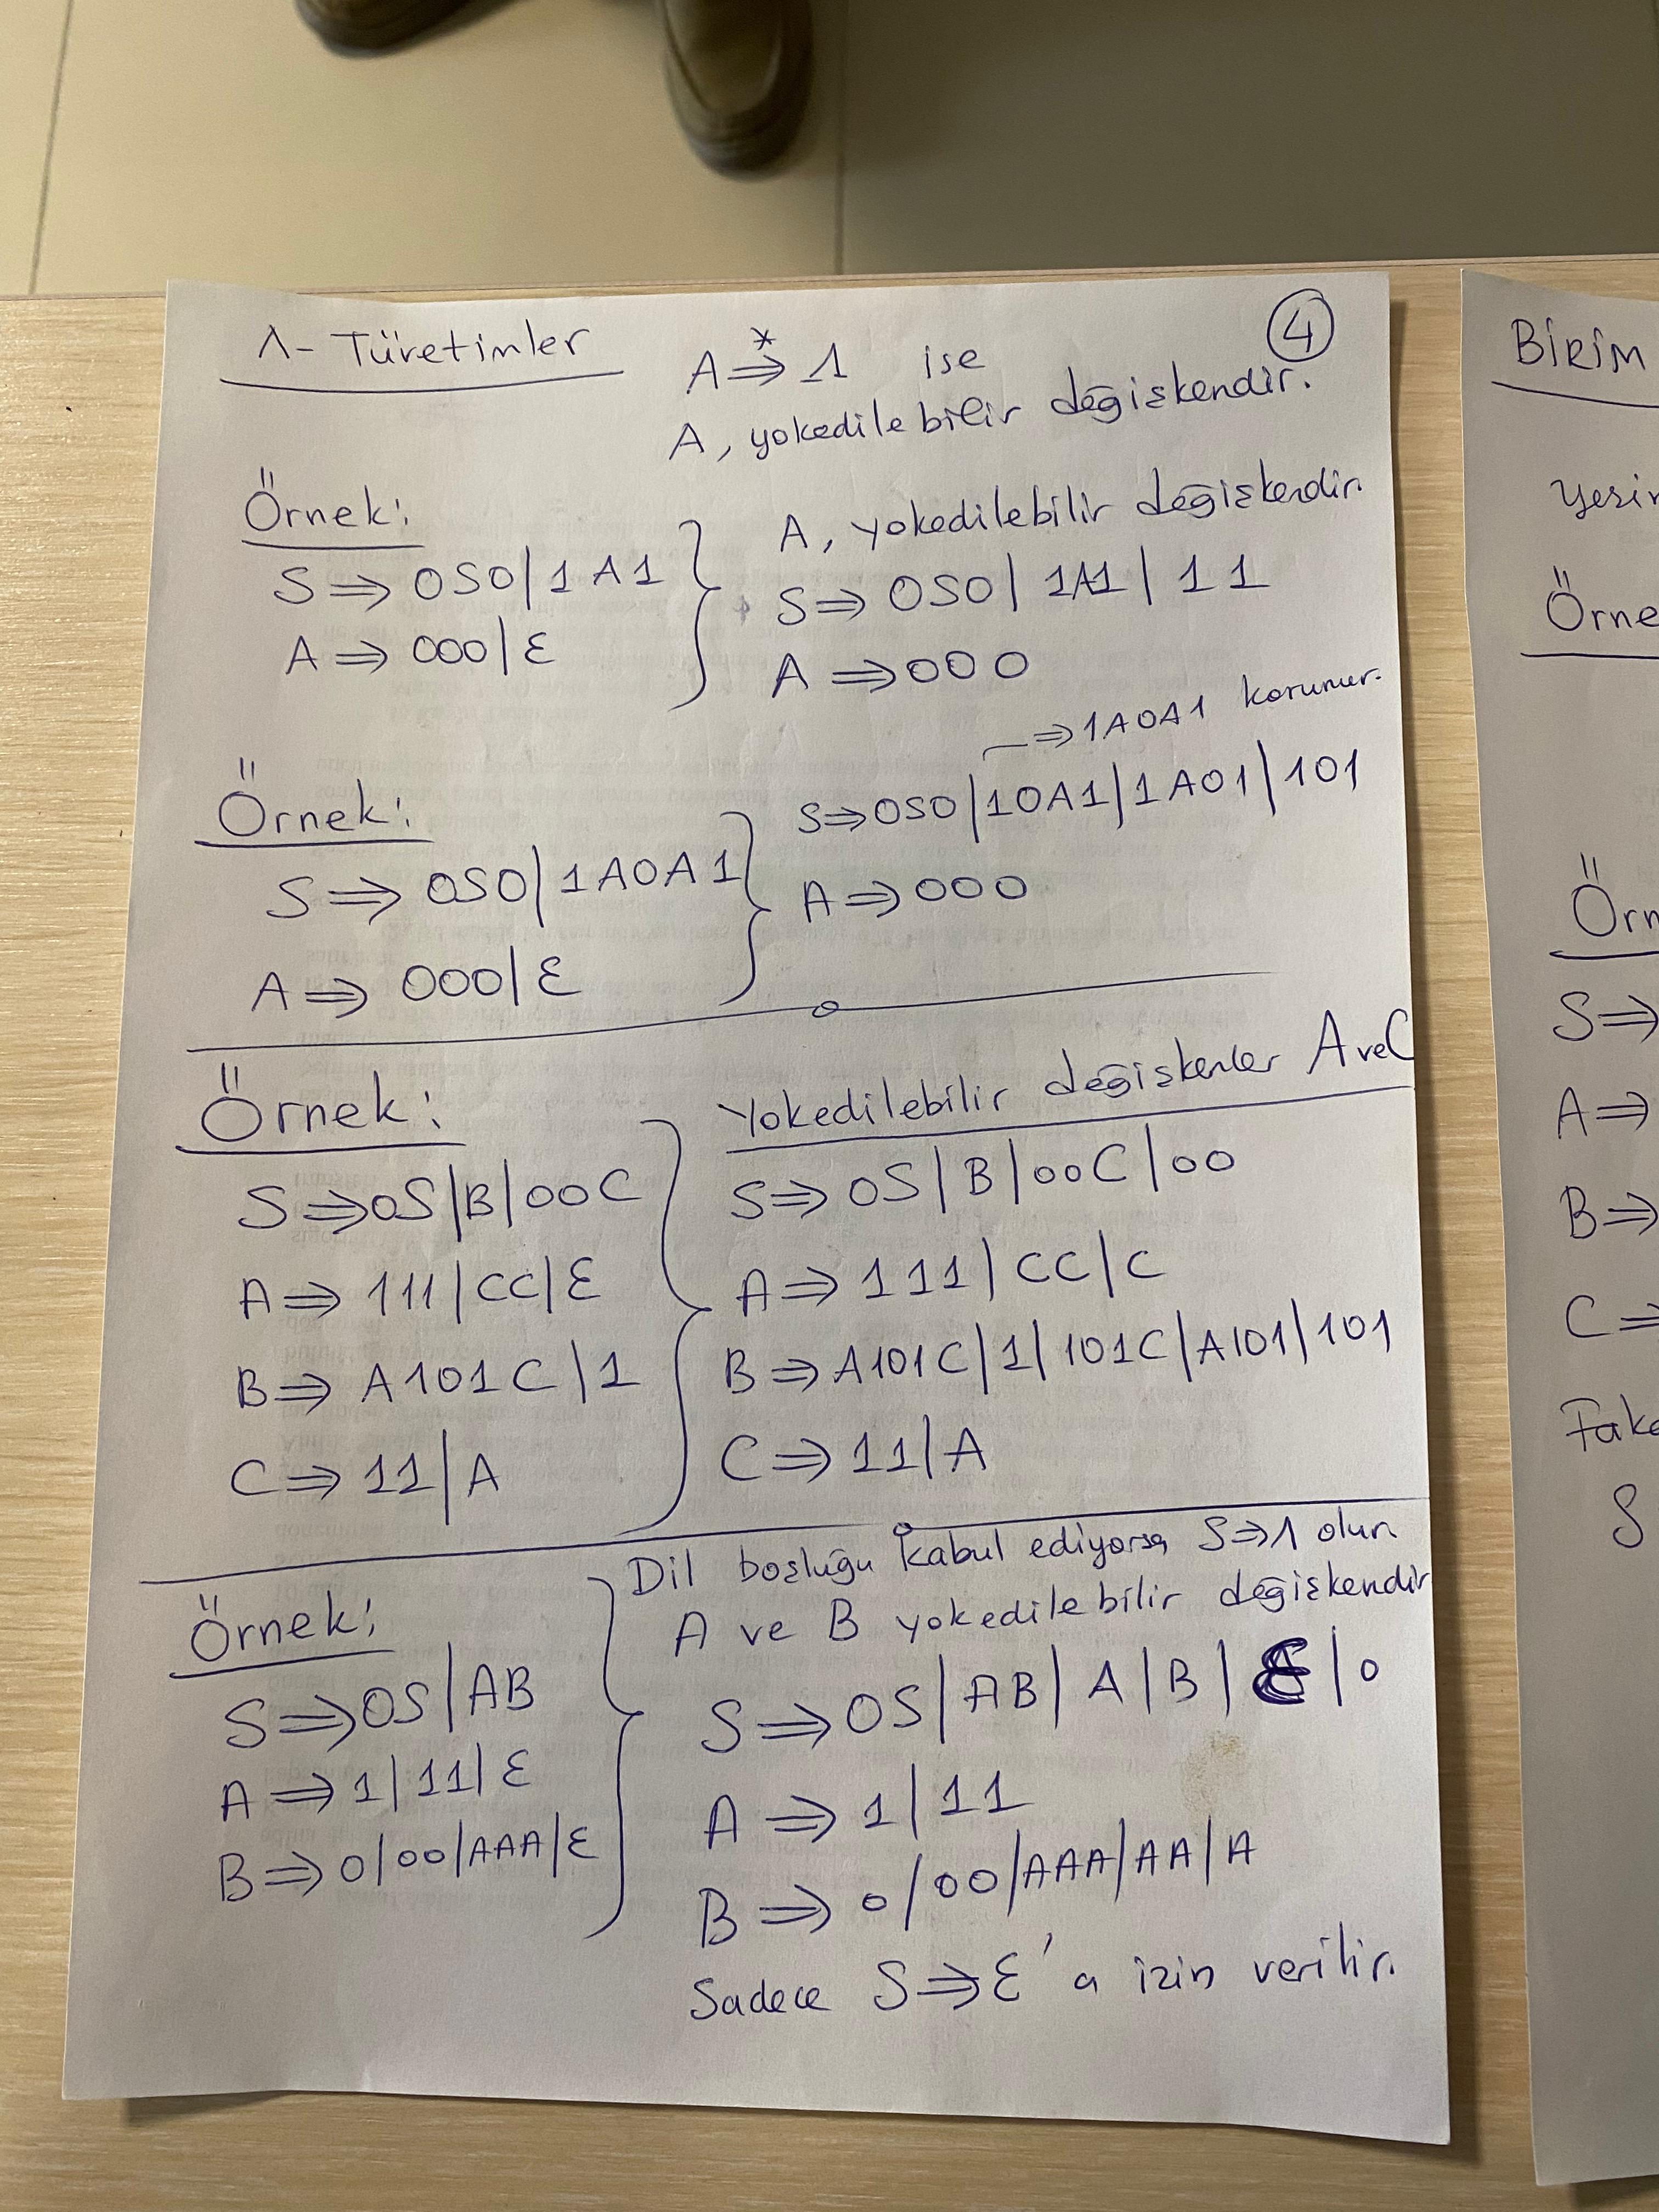 Λ- Türetimler
④
A ⇒* Λ ise
A, yokedilebilir değişkendir.
Örnek:
S ⇒ 0S0 | 1A1
A ⇒ 000 | ε
A, yokedilebilir değişkendir.
S ⇒ 0S0 | 1A1 | 11
A ⇒ 000
Örnek:
S ⇒ 0S0 | 1A0A1
A ⇒ 000 | ε
⇒ 1A0A1 korunur.
S ⇒ 0S0 | 10A1 | 1A01 | 101
A ⇒ 000
Örnek:
S ⇒ 0S | B | 00C
A ⇒ 111 | CC | ε
B ⇒ A101C | 1
C ⇒ 11 | A
Yokedilebilir değişkenler A ve C
S ⇒ 0S | B | 00C | 00
A ⇒ 111 | CC | C
B ⇒ A101C | 1 | 101C | A101 | 101
C ⇒ 11 | A
Örnek:
S ⇒ 0S | AB
A ⇒ 1 | 11 | ε
B ⇒ 0 | 00 | AAA | ε
Dil boşluğu kabul ediyorsa S ⇒ Λ olur.
A ve B yokedilebilir değişkendir
S ⇒ 0S | AB | A | B | ε | 0
A ⇒ 1 | 11
B ⇒ 0 | 00 | AAA | AA | A
Sadece S ⇒ ε'a izin verilir.
BİRİM
Yerin
Örne
Örn
S ⇒
A ⇒
B ⇒
C ⇒
Fake
S